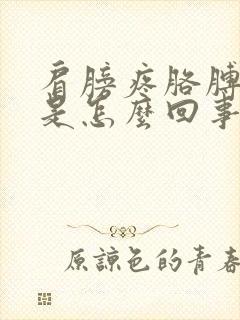 肩膀疼胳膊
是怎麼回事
原諒色的青春